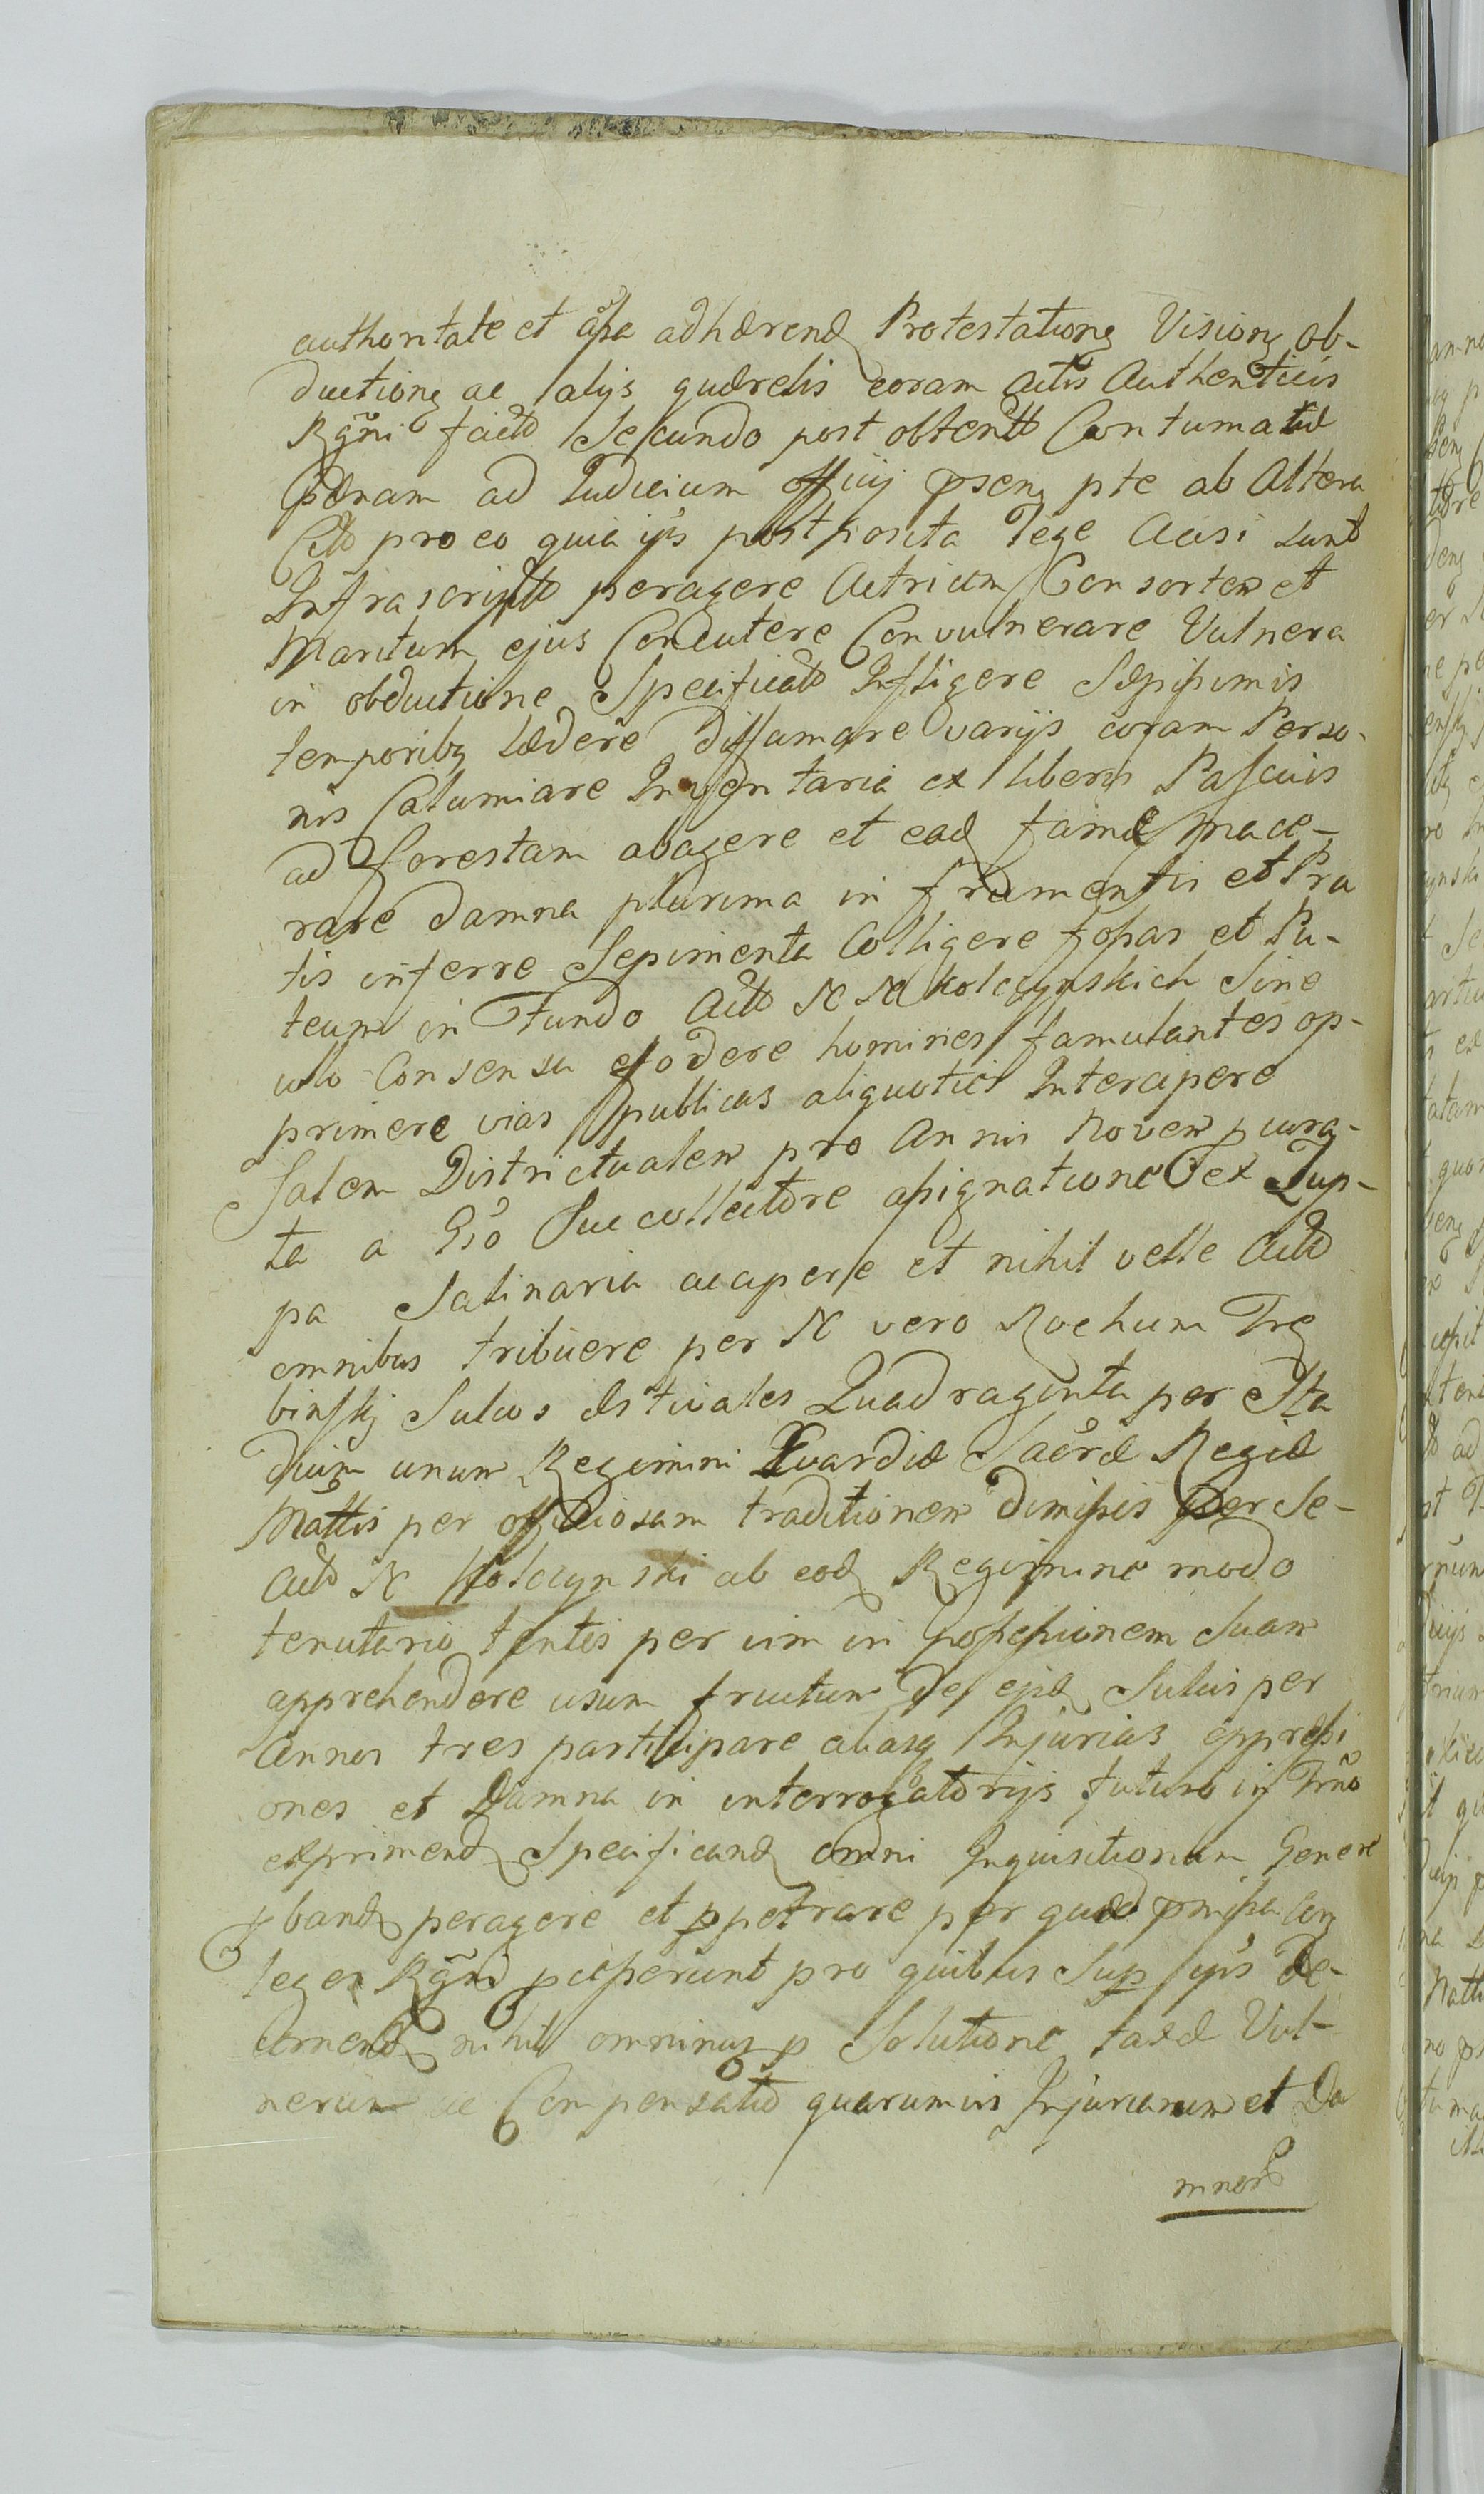 authoritate et adhærend Protestationę Visionę ob-
ductionę ac alijs quærelis coram actis Authenticis
Rgñi fact Secundo post obtent Contumatiæ
Pænam ad Iudicium officij pte ab Altera
Citt pro eo quia ijs postposita lege ausi sunt
Infrascriptt peragere Actricem Consortem et
Maritum ejus Concutere Convulnerare Vulnera
in obductione Specificatt Infligere Sæpissimis
temporibq lædere diffamare varijs coram Perso-
nis Calumiare Inventaria ex liberis Pascuis
ad forestam abagere et ead fame mace-
rare damna plurima in frumentis et Pra
tis inferre Sepimenta Colligere fossas et Pu-
teum in Fundo Actt N N Kolczynskich Sine
ullo Consensu effodere homines famulantes op-
primere vias publicas aliquoties Intercipere
Salem Districtualem pro Annis Novem pcura-
ta a Gso Succollectore assignatione ex Zup-
pa Salinaria accepisse et nihil velle Actt
omnibus tribuere per N vero Rochum Trę
binskij Sulcos æstivales Quadraginta per Sta
dium unum Regimini Gvardiæ Sacræ Regiæ
Mattis per officiosam traditionem dimissis per Se-
Actt N Kolczynski ab eod Regimine modo
tenutario tentis per vim in possessionem Suam
apprehendere usum fructum de ejsd Sulcis per
Annos tres participare aliasq Injurias oppressi
ones et Damna in interrogatorijs futuro in Trño
exprimend Specificand omni Inquisitionum Genere
pband peragere et ppetrare per quæ præmissa
leges Rgñi pcesserunt pro quibus Sup ijs De-
cernend nihil ominus p Solutione taxæ Vul-
nerum ac Compensatt quarumvis Injuriarum et Da
mnor